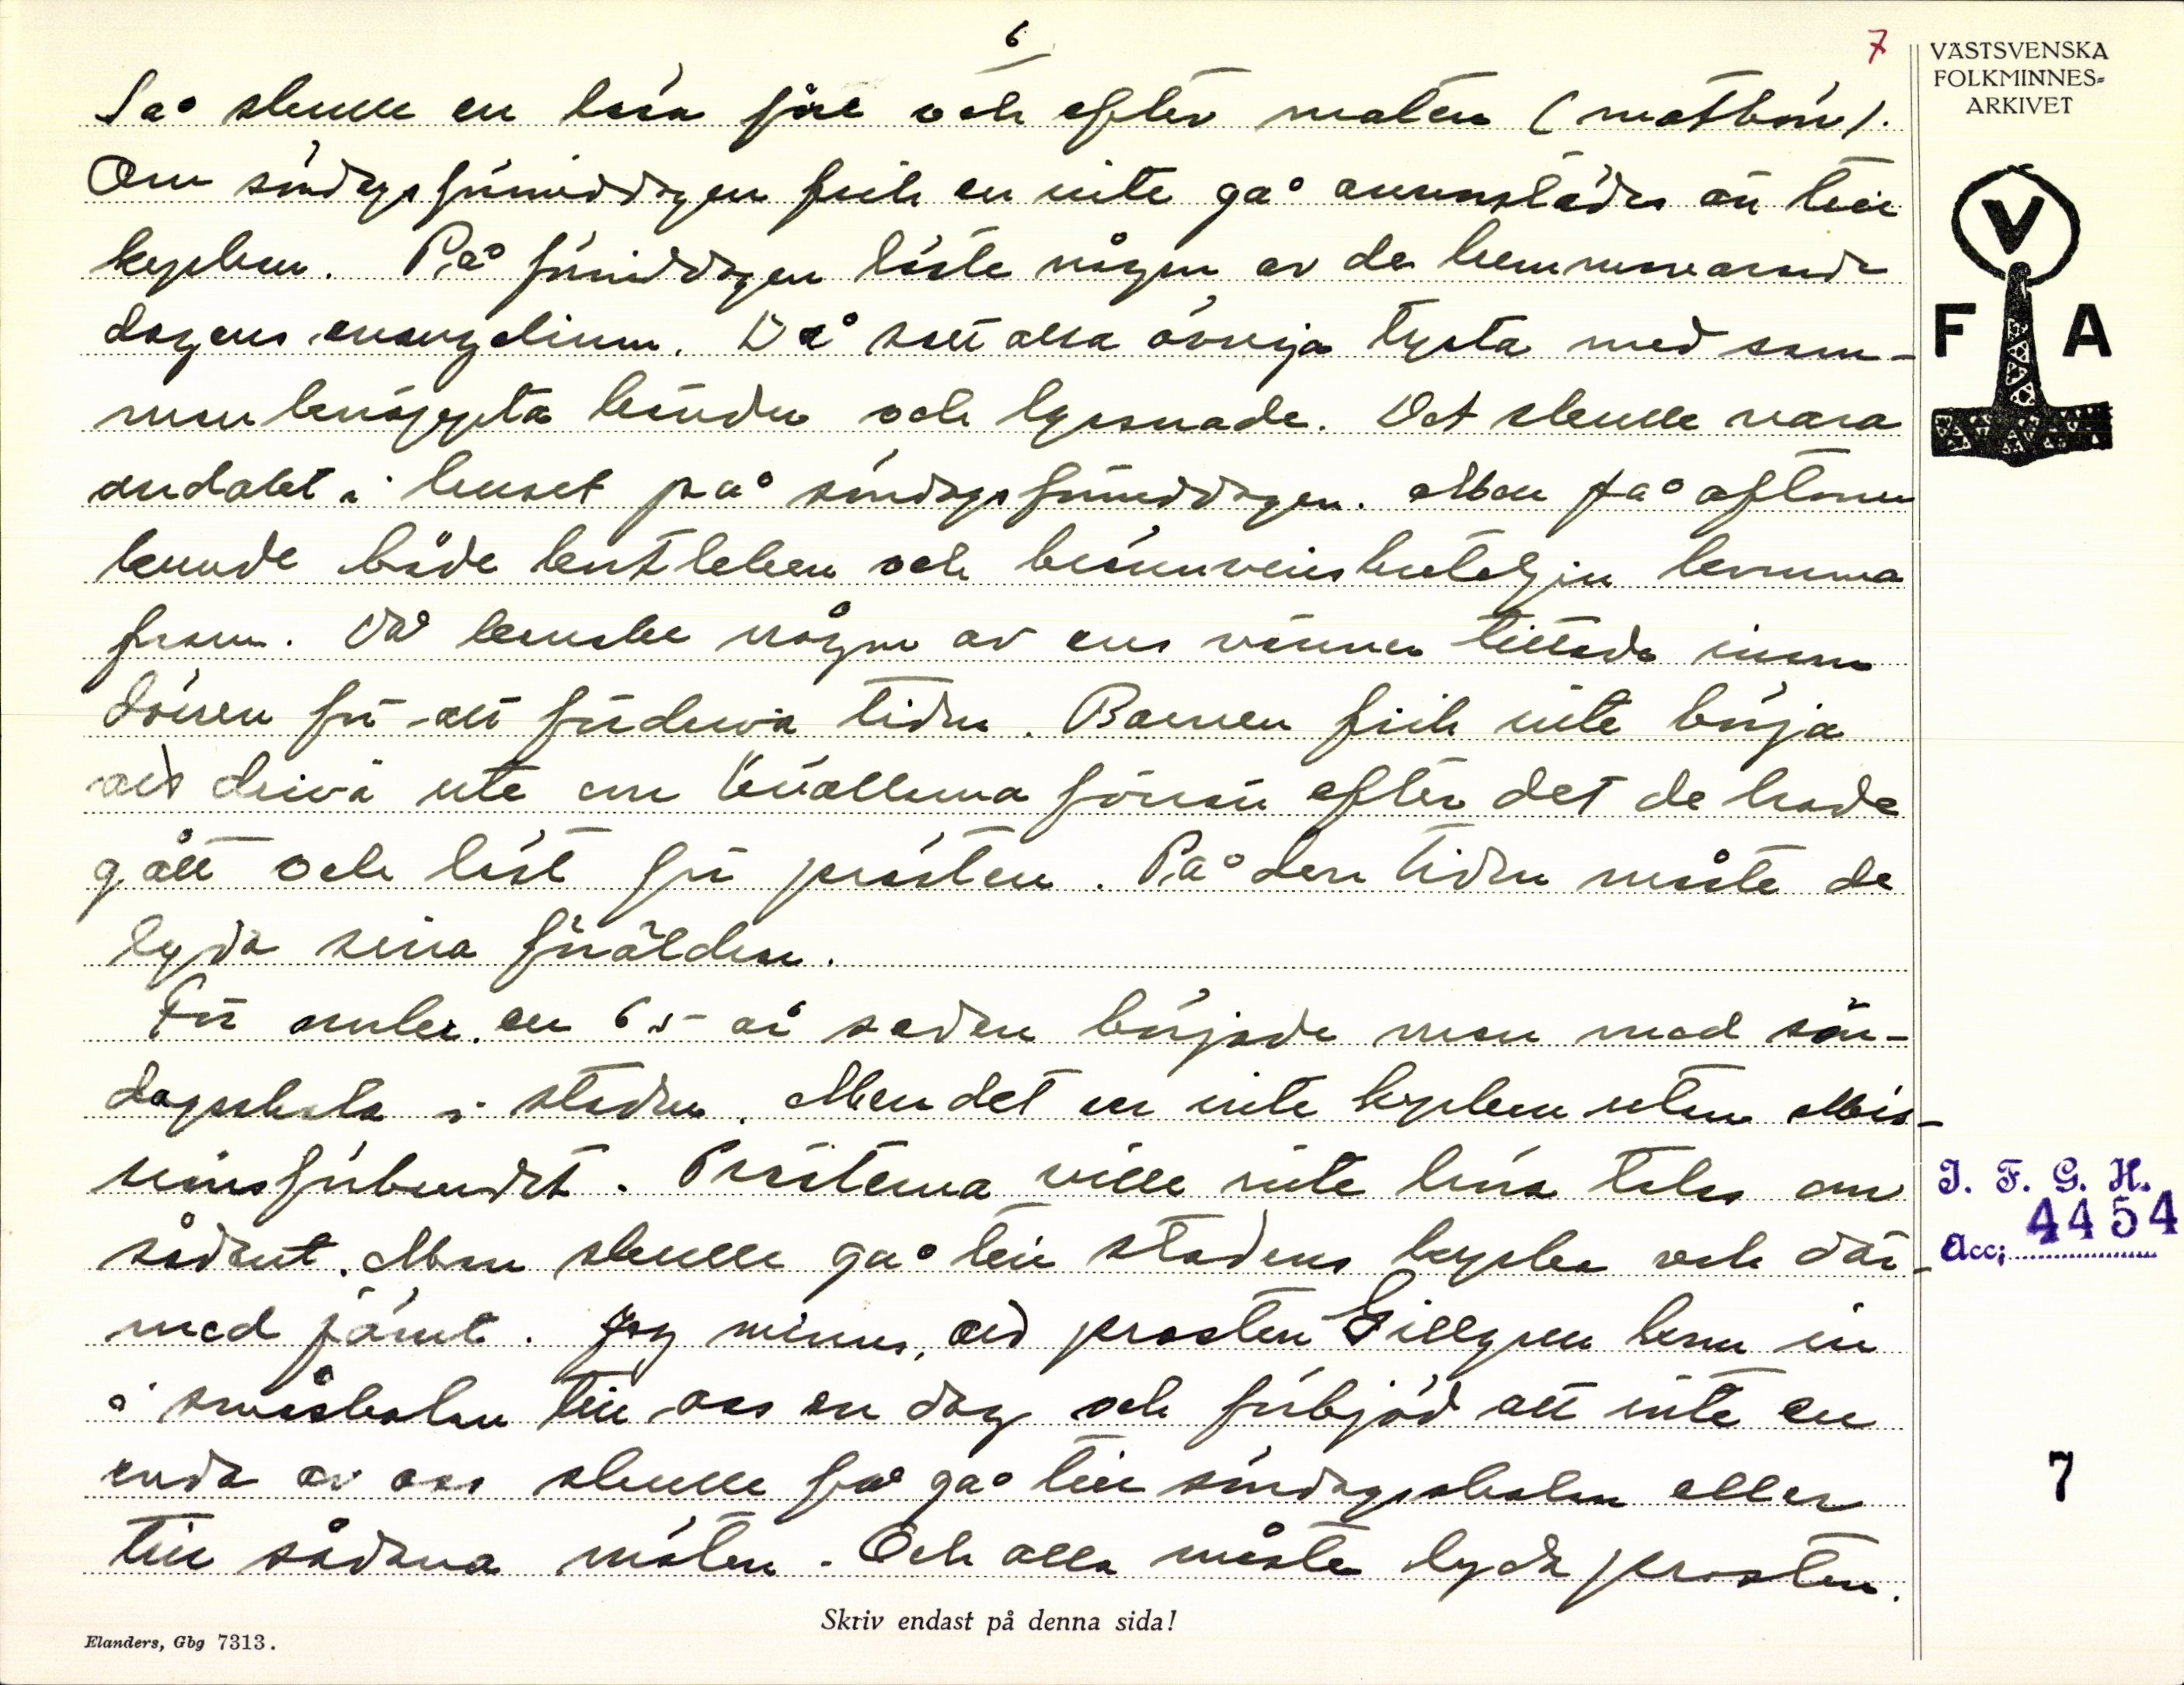 6
7
VÄSTSVENSKA
FOLKMINNES=
ARKIVET
V
F A
Så skulle en läsa före och efter maten (matbön).
Om söndagsförmiddagen fick en inte gå annorstädes än till
kyrkan. På förmiddagen läste någon av de hemmavarande
dagens evangelium. Då satt alla övriga tysta med sam-
manknäppta händer och lyssnade. Det skulle vara
andakt i huset på söndagsförmiddagen. Men på aftonen
kunde både kortleken och brännvinsbutelljen komma
fram. Då kanske någon av ens vänner tittade inom
dörren för att fördriva tiden. Barnen fick inte börja
att driva ute om kvällarna förrän efter det de hade
gått och läst för prästen. På den tiden måste de
lyda sina föräldrar.
För omkr. en 65 år sedan började man med sön-
dagsskola i staden. Men det er inte kyrkan utan Mis-
sionsförbundet. Prästerna ville inte höra talas om
sådant. Man skulle gå till stadens kyrka och där-
med jämt. Jag minns, att prosten Gillgren kom in
i småskolan till oss en dag och förbjöd att inte en
enda av oss skulle få gå till söndagsskolan eller
till sådana möten. Och alla måste lyda prosten.
I. F. G. H.
Acc; 4454
7
Skriv endast på denna sida!
Elanders, Gbg 7313.